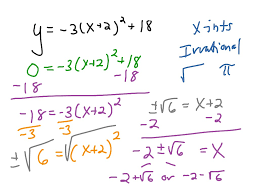 y = -3(x+2)² + 18
x-ints
Irrational
√ π
0 = -3(x+2)² + 18
-18 -18
-18 = -3(x+2)²
-3 -3
±√6 = √(x+2)²
±√6 = x+2
-2 -2
-2 ± √6 = x
-2+√6 or -2-√6